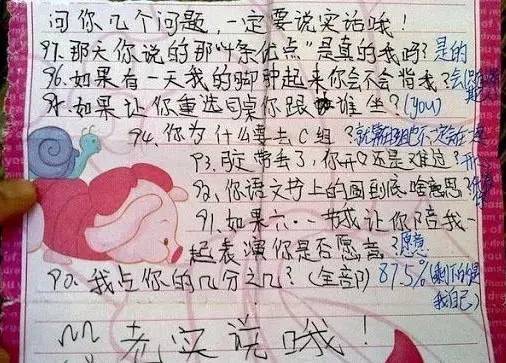 问你几个问题，一定要说实话哦！
97.那天你说的那"4条优点"是真的我吗？是的
96.如果有一天我的脚肿起来你会不会背我？会
95.如果让你重选同桌你跟谁坐？(you)
94.你为什么要去C组？
93.胶带丢了，你开心还是难过？
92.你语文书上的图到底啥意思
91.如果六·一节我让你陪我一
起表演你是否愿意？愿意
90.我占你的几分之几？(全部) 87.5%(剩下的是
我自己)
老实说哦！